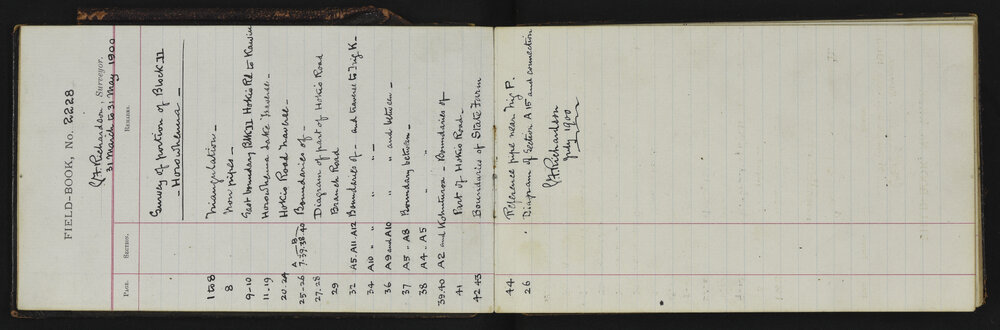 FIELD-BOOK, No. 2228.
G F Richardson, Surveyor.
31 March to 31 May 1900
PAGE. SECTION. REMARKS.
Survey of portion of Block II
- Horowhenua -
1 to 8 Triangulation -
8 Iron pipes -
9-10 East boundary Blk II Hokio Rd. to Kawiu
11-19 Horowhenua Lake Traverse -
20-24 Hokio Road Traverse -
25-26 A B 7.39.38.40 Boundaries of -
27-28 Diagram of part of Hokio Road
29 Branch Road
32 A5. A11. A12 Boundaries of - and traverse to Trig K -
34 A10 " " " -
36 A9 and A10 " " and between -
37 A5 - A8 Boundary between -
38 A4 - A5 " "
39.40 A2 and Kohuturoa - Boundaries of
41 Part of Hokio Road -
42.43 Boundaries of State Farm
44 Reference pipe near Trig P.
26 Diagram of Section A 15 and connection
G F Richardson
July 1900